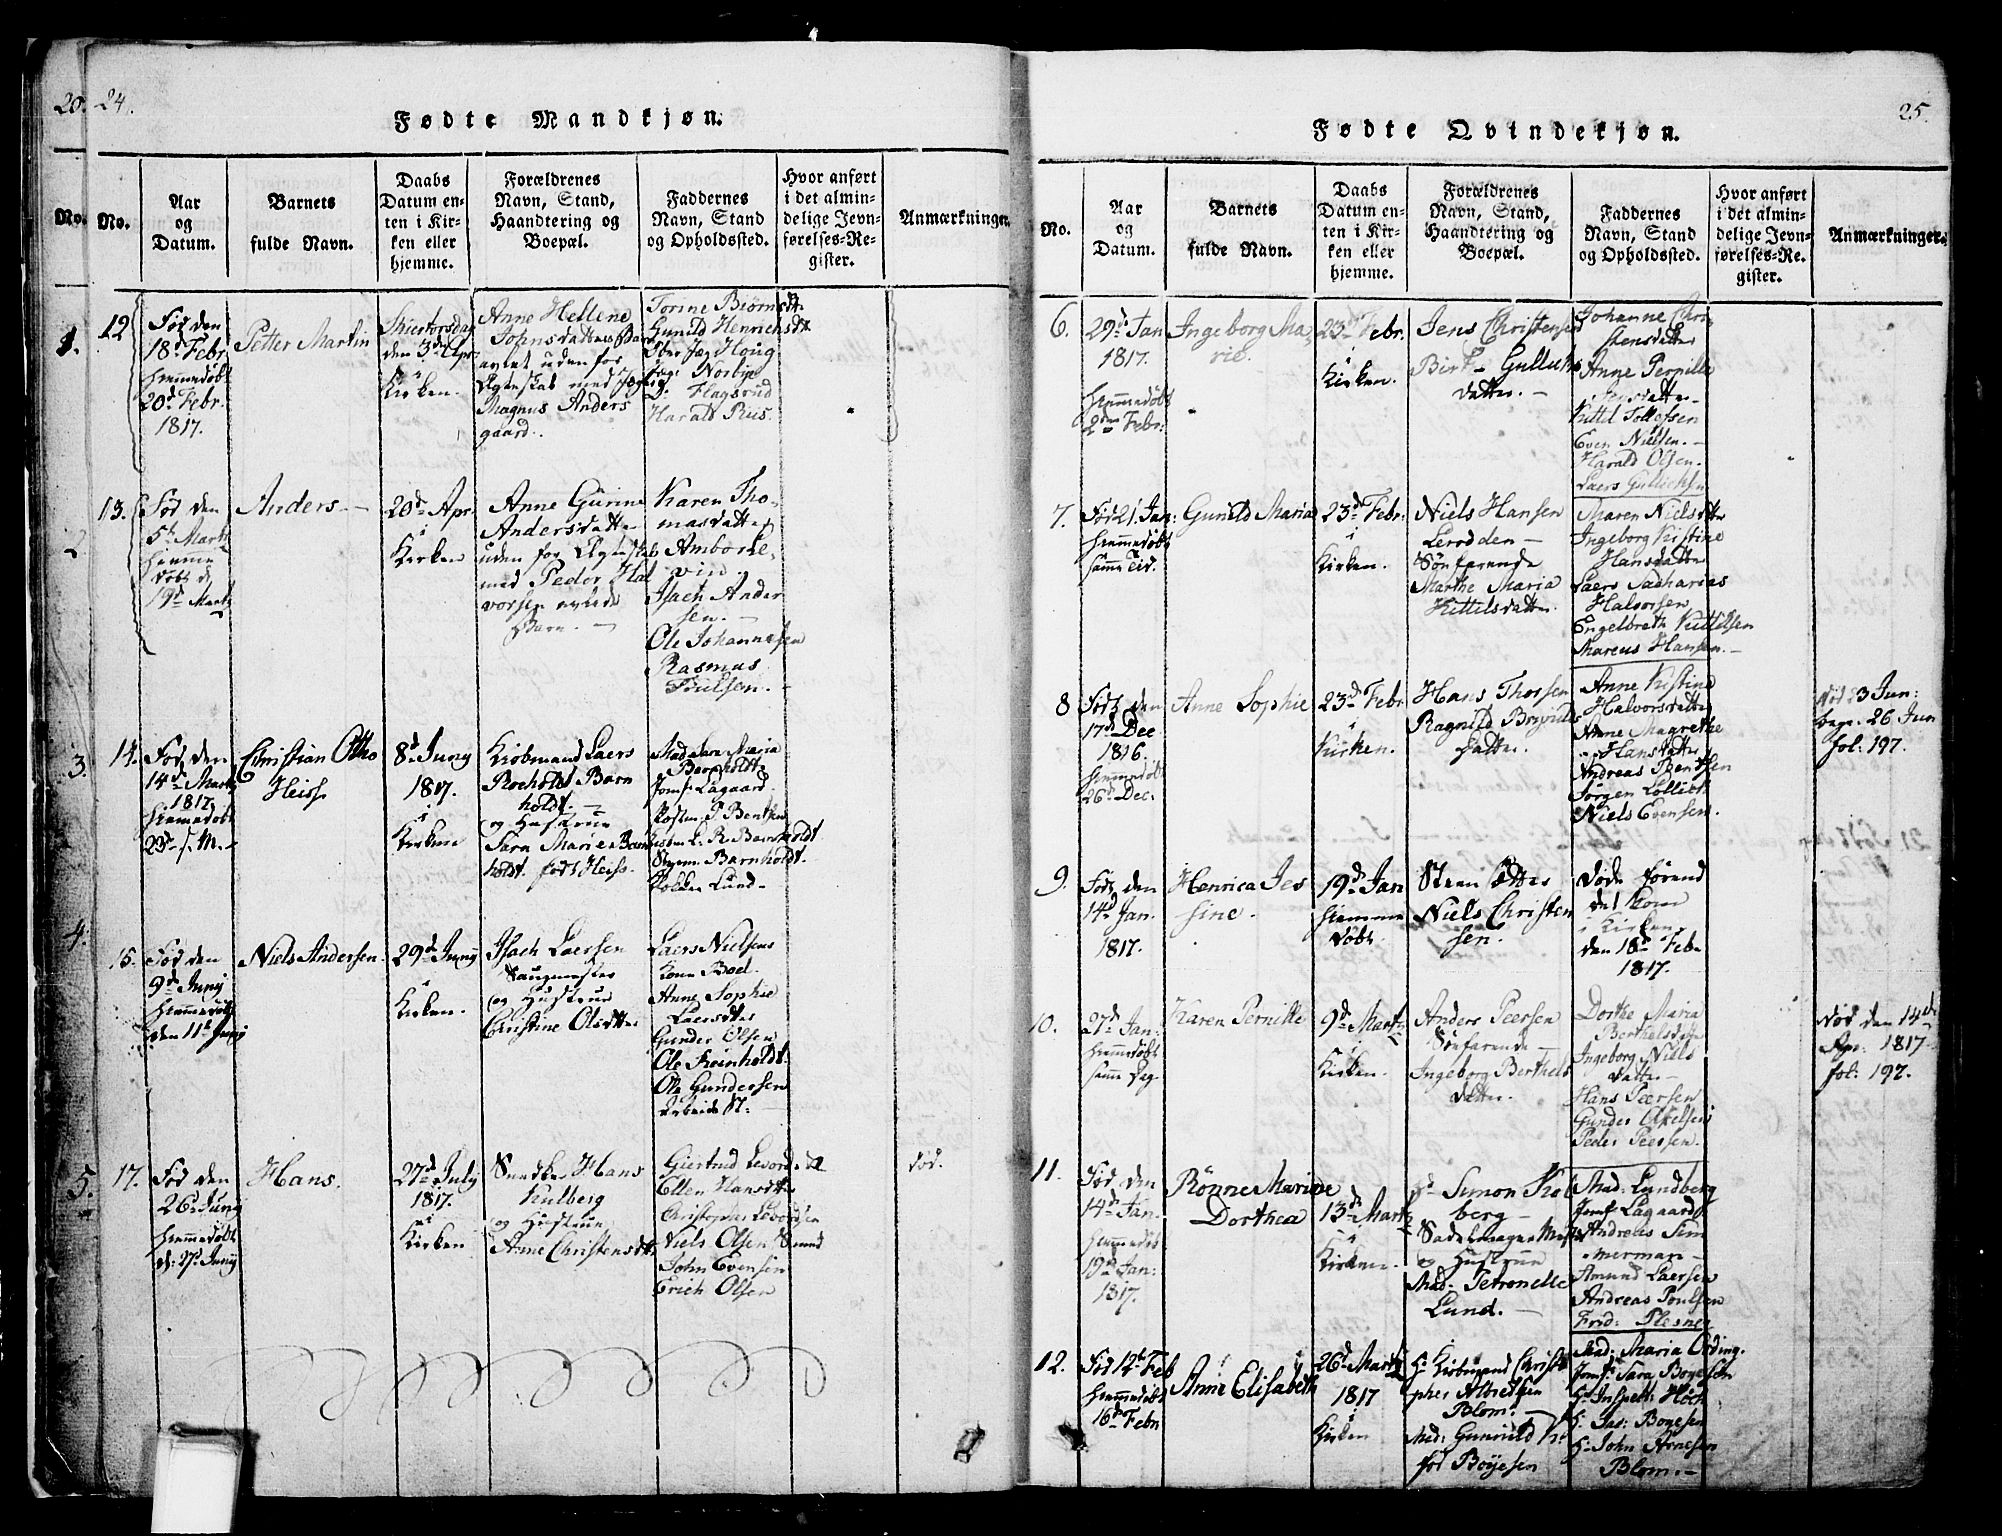 20. 24.
Fødte Mandkjøn.
No.
No.
Aar
og
Datum.
Barnets
fulde Navn.
Daabs
Datum en-
ten i Kir-
ken eller
hjemme.
Forældrenes
Navn, Stand,
Haandtering og
Boepæl.
Faddernes
Navn, Stand
og Opholdssted.
Hvor anført
i det almin-
delige Jevn-
førelses-Re-
gister.
Anmærkninger.
1.
12
Fød den
18d Febr
hiemmedøbt
20d Febr.
1817.
Petter Martin
Skiertorsdag
den 3d Apr
i
Kirken.
Anne Hellene
Johnsdatters Barn
avlet uden for
Ægteskab med
Magnus Anders
gaard.
Torine Biørnsdtr
Gunild Henrichsdtr
Harald Rus
2
13.
Fød den
5t Martz
hiemme
døbt d
19d Martz
Anders
20d Apr
i
Kirken
Anne Gurine
Andersdatter
uden for Ægteskab
med Peder Hal
vorsen avlede
Barn.
Karen Tho-
masdatter
Isach Ander
sen.
Ole Johannesen
Rasmus
Poulsen.
3.
14.
Fød den
14d Martz
1817
hiemmedøbt
23d s. M.
Christian Otho
Heiss
8d Juny
1817.
i
Kirken
Kiøbmand Laers
Rocholdt Barn
holdt.
og Hustrue
Sara Marie Barn
holdt født Heiss.
Mad. Sara Maria
Jomf: Aagaard.
P. Bentsen
L. R. Barnholdt
Barnholdt.
Lund
4.
15.
Fød den
9d Juny
hiemmedøbt
den 11t Juny
Niels Andersen.
29d Juny
i
Kirken.
Isach Laersen
Saugmester
og Hustrue
Christine Olsdtter
Laers Nielsens
Kone Boel.
Anne Sophie
Laersdtter
Gunder Olsen
Ole Reinholdt.
Ole Gundersen
Arbeids St:
5.
17.
Fød den
26d Juny
hiemmedøbt
d: 27d Juny
Hans.
27d July
1817.
i
Kirken
Smeden Hans
Kulberg
og Hustrue
Anne Christensdtr
Giertrud Levordsdtr
Ellen Hansdtr
Christopher Levordsen
Niels Olsen Smed
John Evensen
Erich Olsen
død.
25.
Fødte Qvindekjøn.
No.
Aar
og
Datum.
Barnets
fulde Navn.
Daabs
Datum en-
ten i Kir-
ken eller
hjemme.
Forældrenes
Navn, Stand,
Haandtering og
Boepæl.
Faddernes
Navn, Stand
og Opholdssted.
Hvor anført
i det almin-
delige Jevn-
førelses-Re-
gister.
Anmærkninger.
6.
29d Jan
1817.
hiemmedøbt
2den Febr:
Ingeborg Ma
rie.
23d Febr.
i
Kirken.
Jens Christensen
Birt Gulluks
datter.
Johanne Chri-
stensdatter
Anne Pernille
Jensdatter
Kittil Tollefsen
Even Nielsen.
Harald Olsen.
Laers Gullichsen
7.
Fød 21. Jan:
hiemmedøbt
samme Tid.
Gunild Maria
23d Febr.
i
Kirken.
Niels Hansen
Lerodden
Søefarende
Marthe Maria
Kittilsdatter.
Maren Nielsdtter
Ingeborg Kistine
Hansdatter
Laers Sacharias
Halvorsen
Engelbreth Kittilsen
Marcus Hansen.
8
Født den
17d Dec
1816.
hiemmedøbt
26d Dec.
Anne Sophie
23d Febr
i
Kirken.
Hans Thorsen
Ragnild Brynilds
datter.
Anne Kistine
Halvorsdatter
Anne Magrethe
Hansdatter
Andreas Bentsen
Jørgen Lollick
Niels Evensen.
død 23 Jun:
begr. 26 Jun
fol: 197.
9.
Født den
14d Jan.
1817.
Henrica Jes
sine.
19d Jan
hiemme
døbt.
Niels Christen
sen.
Døde førend
det kom
i Kirken
den 18d Feb
1817.
10.
27d Jan:
hiemmedøbt
samme Dag.
Karen Pernille
9d Martz
i
Kirken.
Anders Peersen
Søefarende
Ingeborg Berthels
datter.
Dorthe Maria
Berthelsdtr
Ingeborg Niels
datter
Hans Peersen
Gunder Axelsen
Peder Peersen.
Død den 14de
Apr: 1817
fol: 197.
11.
Fød den
14d Jan.
hiemmedøbt
19d Jan:
1817.
Rønne Marine
Dorthea
13d Martz
i
Kirken.
Simon Kol
berg
Sadelmager Mester
og Hustrue
Mad. Petronelle
Lund.
Mad: Lundberg
Jomf Aagaard
Andreas Sim
merman
Amund Laersen
Andreas Poulsen
Frid: Plesner
12.
Fød 12t Feb
hiemmedøbt
16d Febr
Anne Elisabeth
26d Martz
1817
i
Kirken
Hr Kiøbmand Christo
pher Albretsen
Blom.
Mad: Gunnild
fød Boyesen
Mad: Maria Ording.
Jomf: Sara Boyesen
Hr Inspect: Høeh
Hr Jac: Boyesen
Hr John Arnesen
Blom.